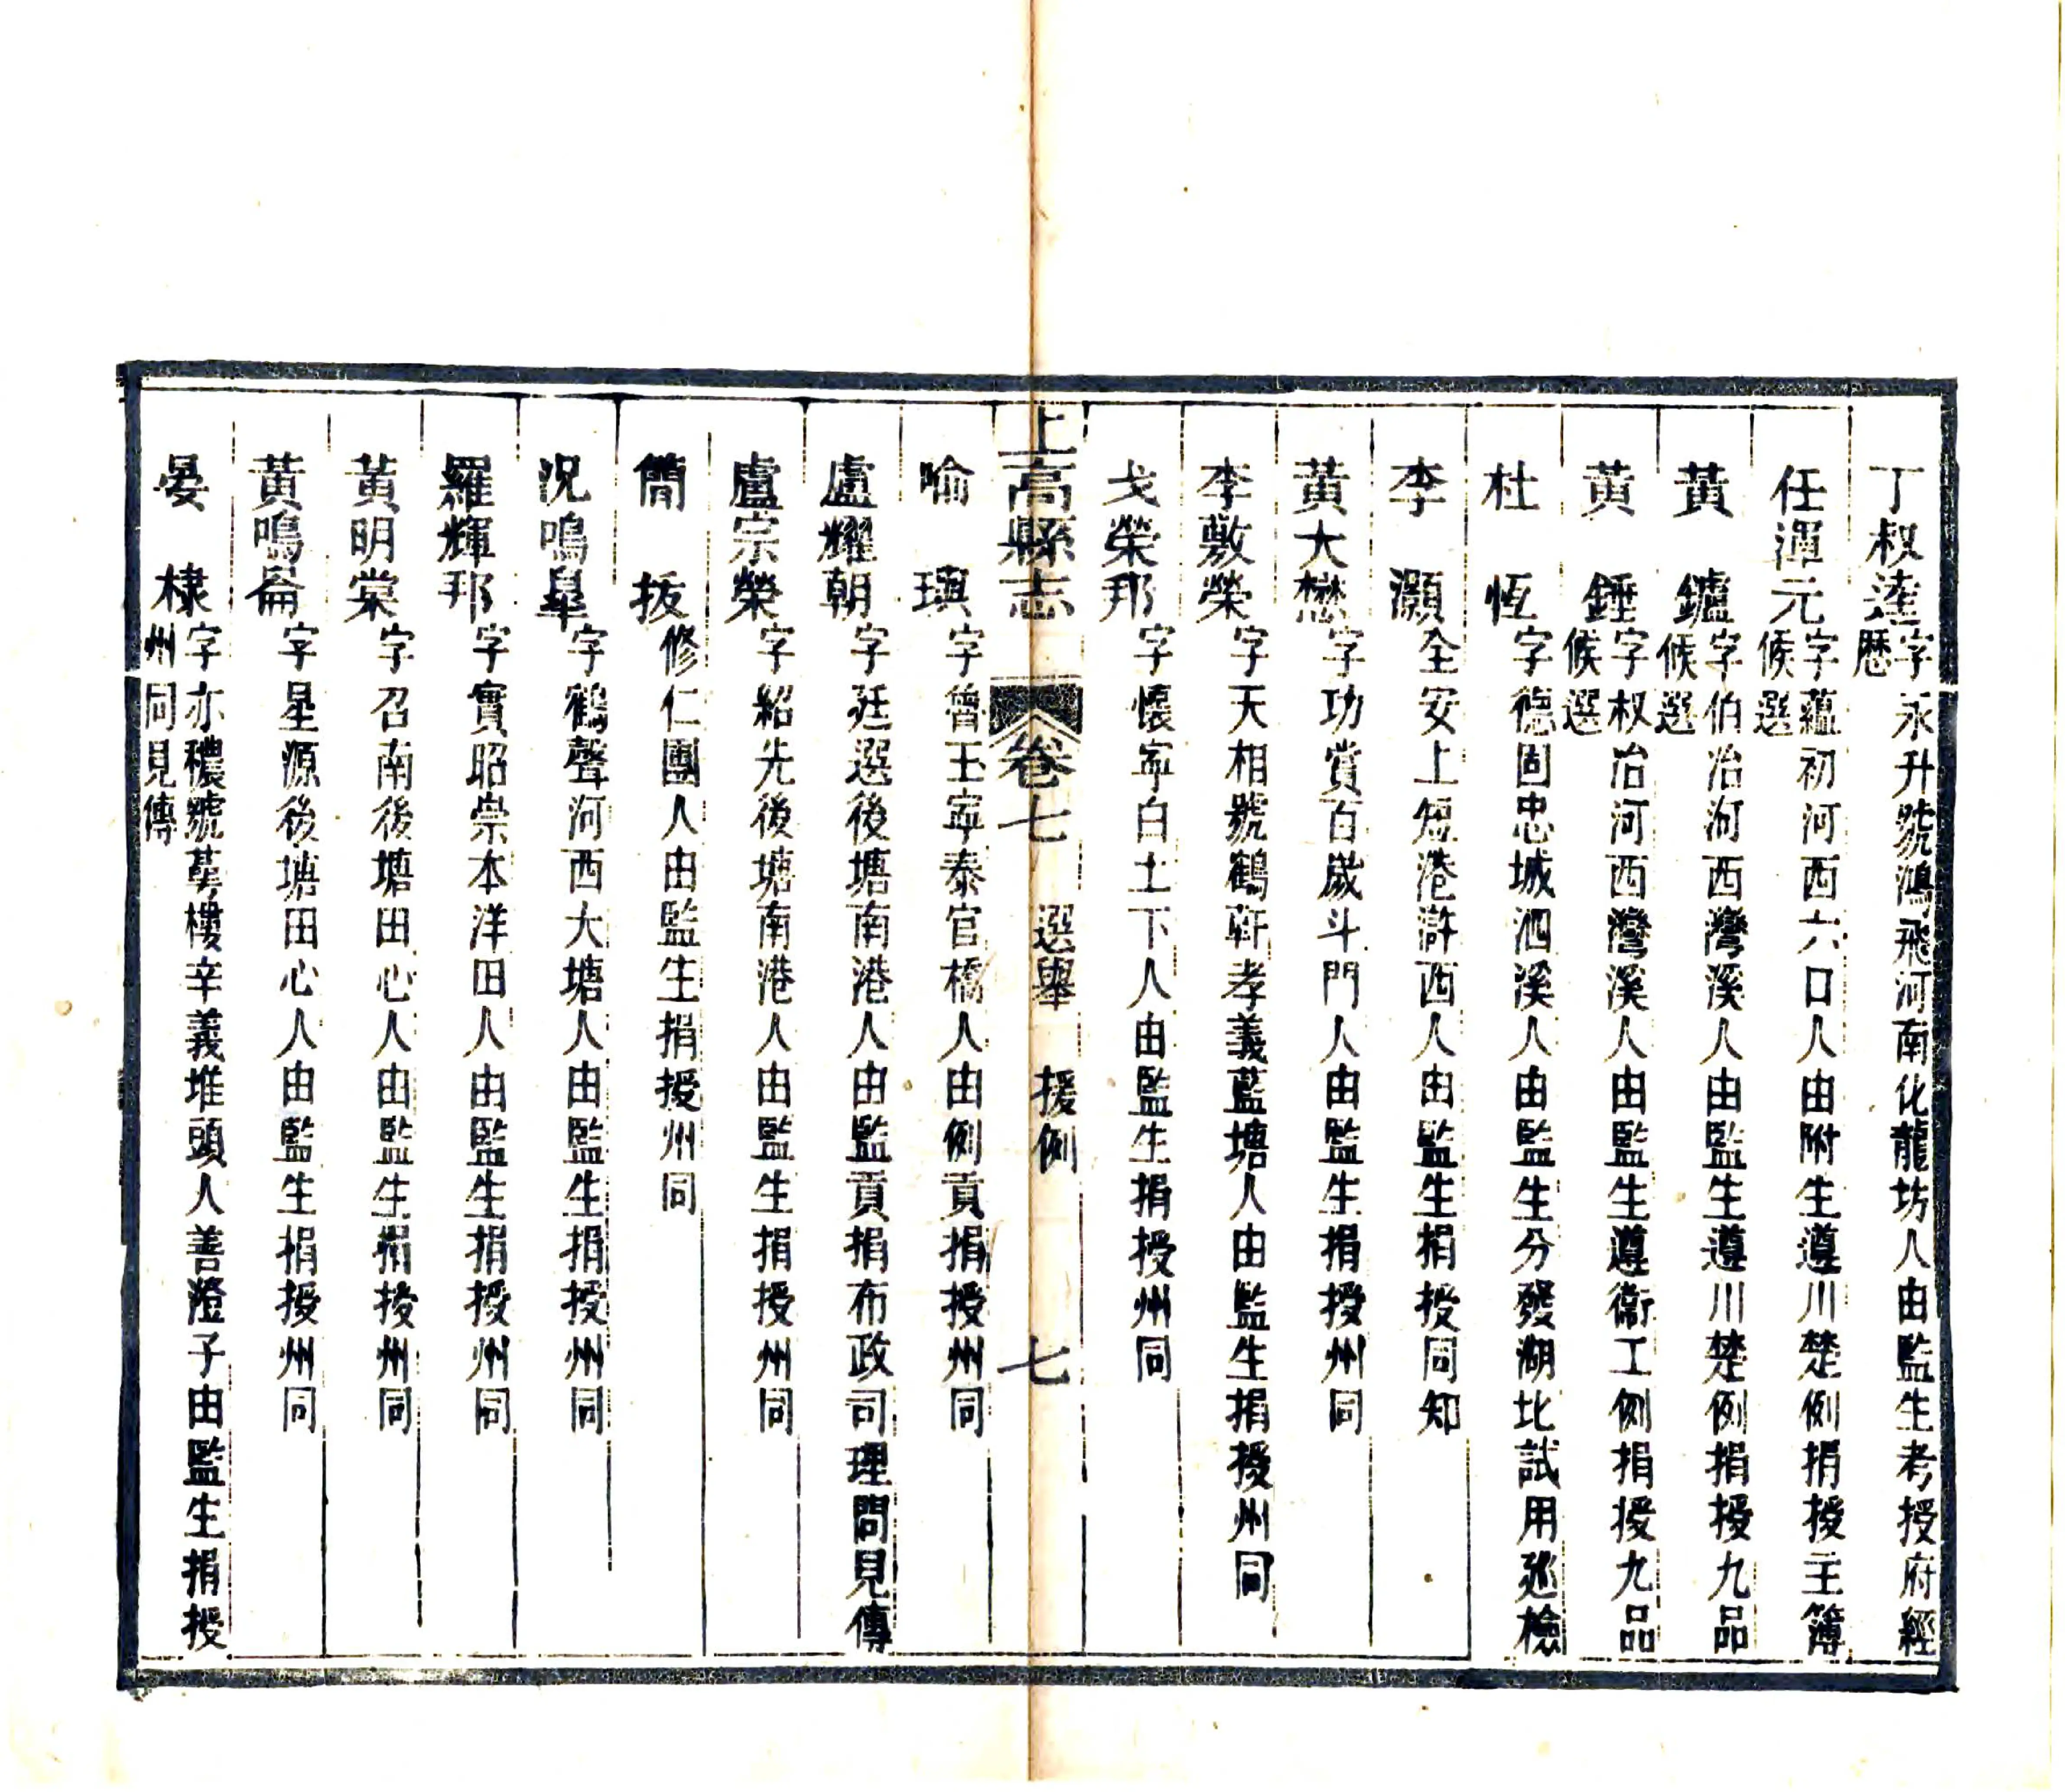 丁叔達字永升號鴻飛河南化龍坊人由監生考授府經
歷
任渾元字蘊初河西六口人由附生遵川楚例捐授主簿
候選
黃鑪字伯冶河西灣溪人由監生遵川楚例捐授九品
候選
黃錘字叔冶河西灣溪人由監生遵衞工例捐授九品
候選
杜恆字德固忠城泗溪人由監生分發湖北試用廵檢
李灝全安上短港滸西人由監生捐授同知
黃大懋字功賞百嵗斗門人由監生捐授州同
李敷榮字天相號鶴軒孝義藍塘人由監生捐授州同
戈榮邦字懷寧白土下人由監生捐授州同
上高縣志 卷七 選舉 援例 七
喻瑱字曾玉寧泰官橋人由例貢捐授州同
盧耀朝字廷選後塘南港人由監貢捐布政司理問見傳
盧宗榮字紹先後塘南港人由監生捐授州同
簡拔修仁團人由監生捐授州同
況鳴臯字鶴聲河西大塘人由監生捐授州同
羅輝邦字實昭崇本洋田人由監生捐授州同
黃明棠字召南後塘田心人由監生捐授州同
黃鳴崙字星源後塘田心人由監生捐授州同
晏棣字亦穠號萼樓辛義堆頭人善澄子由監生捐授
州同見傳